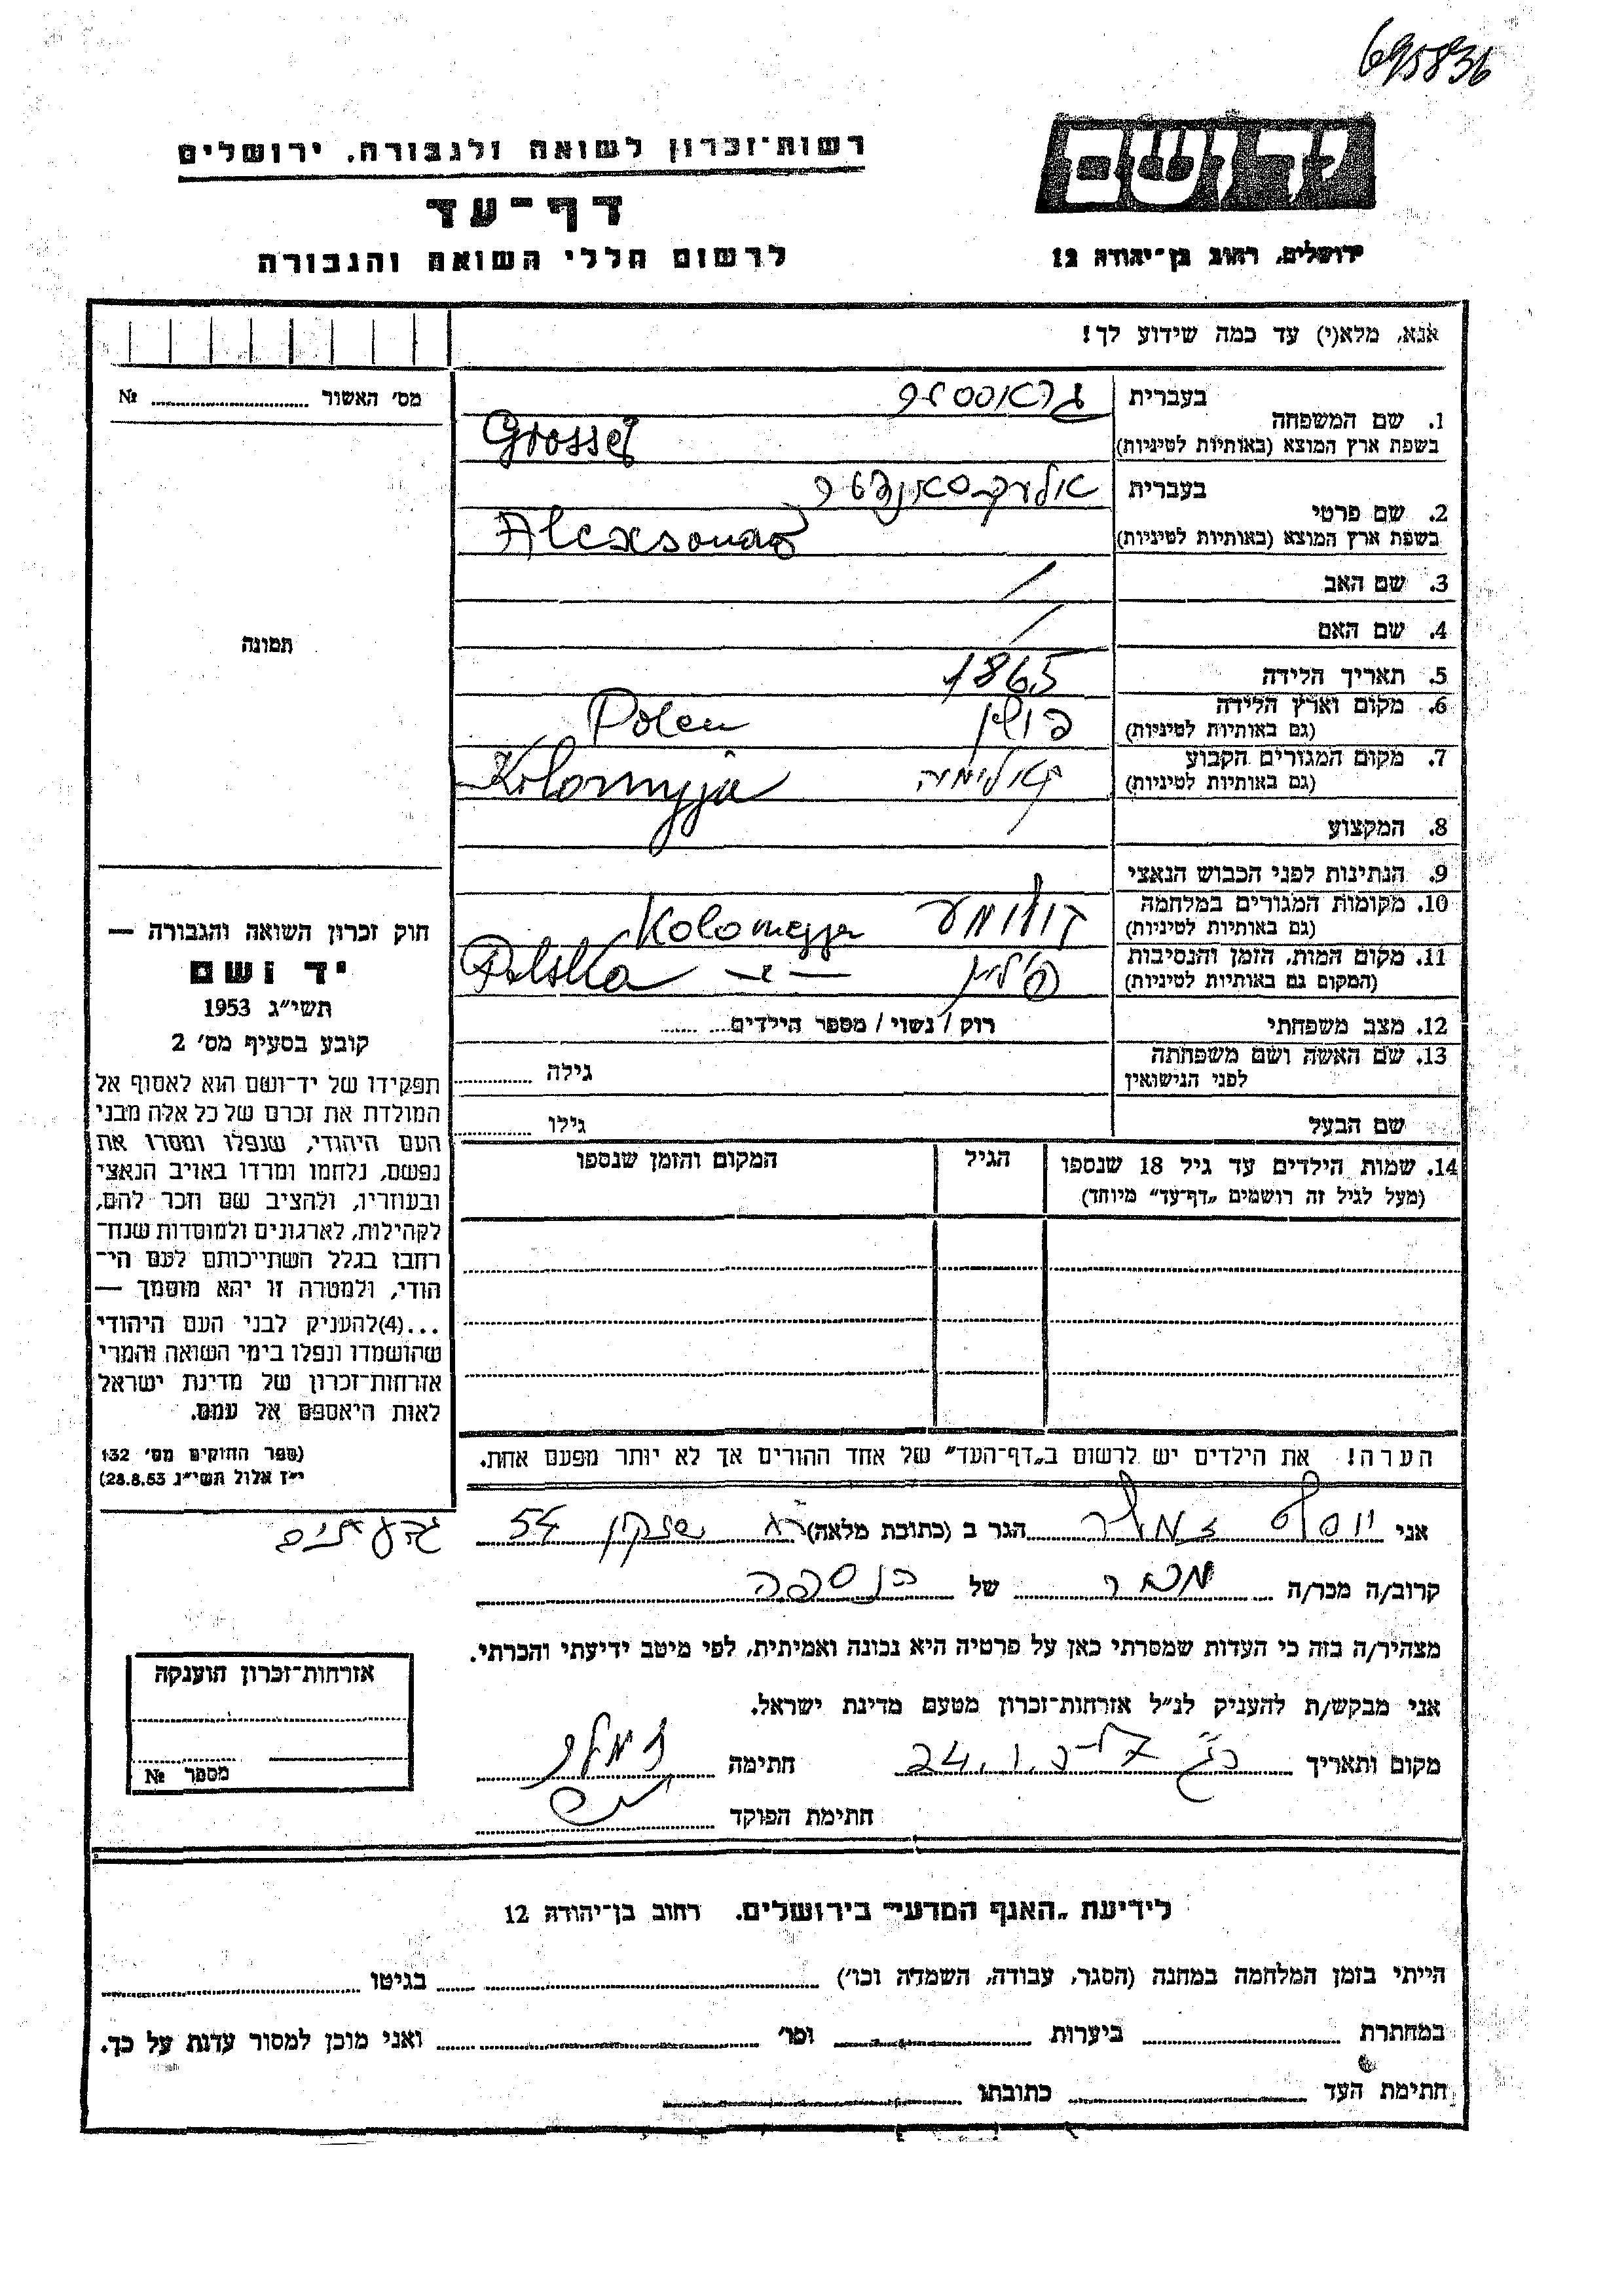 695836
יד ושם
רשות־זכרון לשואה ולגבורה, ירושלים
דף־עד
לרשום חללי השואה והגבורה
ירושלים, רחוב בן־יהודה 12
אנא, מלא(י) עד כמה שידוע לך!
מס׳ האשור № 
בעברית
1. שם המשפחה
בשפת ארץ המוצא (באותיות לטיניות) Grosser
בעברית
2. שם פרטי
בשפת ארץ המוצא (באותיות לטיניות)
3. שם האב /
4. שם האם /
תמונה
5. תאריך הלידה 1865
6. מקום וארץ הלידה פולין Polen
(גם באותיות לטיניות)
7. מקום המגורים הקבוע Kolomyja
(גם באותיות לטיניות)
8. המקצוע /
9. הנתינות לפני הכבוש הנאצי
10. מקומות המגורים במלחמה Kolomyja
(גם באותיות לטיניות)
11. מקום המות, הזמן והנסיבות פולין Polska
(המקום גם באותיות לטיניות)
12. מצב משפחתי רוק / נשוי / מספר הילדים
13. שם האשה ושם משפחתה גילה
לפני הנישואין
שם הבעל גילו
14. שמות הילדים עד גיל 18 שנספו הגיל המקום והזמן שנספו
(מעל לגיל זה רושמים „דף־עד״ מיוחד)
חוק זכרון השואה והגבורה —
יד ושם
תשי״ג 1953
קובע בסעיף מס׳ 2
תפקידו של יד־ושם הוא לאסוף אל
המולדת את זכרם של כל אלה מבני
העם היהודי, שנפלו ומסרו את
נפשם, נלחמו ומרדו באויב הנאצי
ובעוזריו, ולהציב שם וזכר להם,
לקהילות, לארגונים ולמוסדות שנח־
רבו בגלל השתייכותם לעם הי־
הודי, ולמטרה זו יהא מוסמך —
...(4)להעניק לבני העם היהודי
שהושמדו ונפלו בימי השואה והמרי
אזרחות־זכרון של מדינת ישראל
לאות היאספם אל עמם.
(ספר החוקים מס׳ 132
י״ז אלול תשי״ג 28.8.53)
הערה! את הילדים יש לרשום ב„דף־העד״ של אחד ההורים אך לא יותר מפעם אחת.
אני יוסף הגר ב (כתובת מלאה) 54 גבעתיים
קרוב/ה מכר/ה מכר של הנספה
מצהיר/ה בזה כי העדות שמסרתי כאן על פרטיה היא נכונה ואמיתית, לפי מיטב ידיעתי והכרתי.
אני מבקש/ת להעניק לנ״ל אזרחות־זכרון מטעם מדינת ישראל.
מקום ותאריך 24.1. חתימה
חתימת הפוקד
אזרחות־זכרון הוענקה
מספר №
לידיעת „האגף המדעי״ בירושלים. רחוב בן־יהודה 12
הייתי בזמן המלחמה במחנה (הסגר, עבודה, השמדה וכו׳) בגיטו
במחתרת ביערות וכו׳ ואני מוכן למסור עדות על כך.
חתימת העד כתובתו